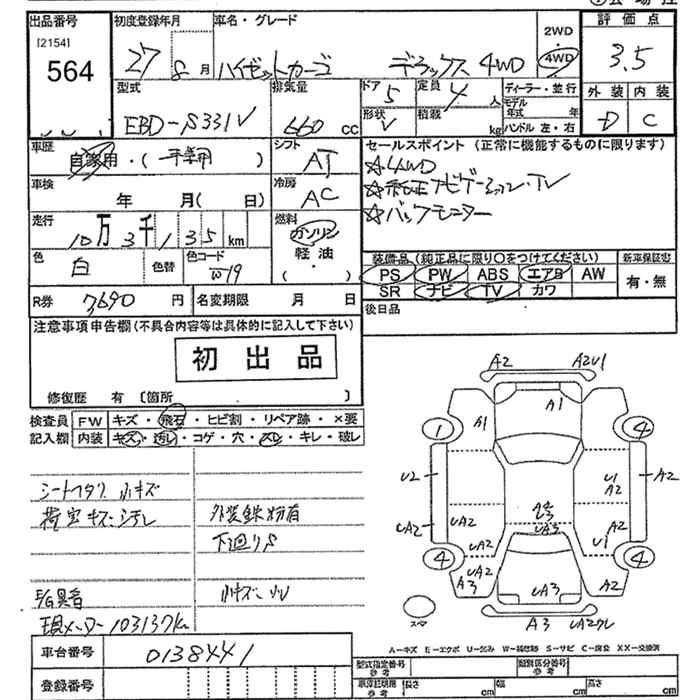 出品番号 初度登録年月 車名・グレード 評価点
[2154] 27 8月 ハイゼットカーゴ デラックス 4WD 2WD ・ 4WD 3.5
564 型式 排気量 ドア 5 定員 4人 ディーラー・並行 外装 内装
EBD-S331V 660 cc 形状 V 積載 kg モデル年式 年 ハンドル 左・右 D C
車歴 自家用・( 事業用 ) シフト AT セールスポイント (正常に機能するものに限ります)
車検 年 月( 日) 冷房 AC ☆4WD
☆純正ナビゲーション・TV
走行 10万3千135km 燃料 ガソリン 軽油 ・ ( ) ☆バックモニター
色 白 色替 色コード W19 装備品 (純正品に限り○をつけてください) 新車保証書
PS PW ABS エアB AW 有・無
SR ナビ TV カワ
R券 7690円 名変期限 月 日 後日品
注意事項申告欄(不具合内容等は具体的に記入して下さい)
初出品
修復歴 有 〔箇所 〕
検査員 FW キズ・飛石・ヒビ割・リペア跡・×要
記入欄 内装 キズ・汚レ・コゲ・穴・スレ・キレ・破レ
シートヘタリ 小キズ
荷室キズ、汚レ 外装錆有
下廻りS
現メーター 103137km
A2 A2U1
A1 A1
1 4
U2 U1 A2 A2
UA2 UA2 A2
UA2 UA3 U1
4 UA2 4
A3 UA3 A2
スペア A3
A=キズ E=エクボ U=凹み W=補修跡 S=サビ C=腐食 XX=交換済
車台番号 0138441
登録番号
型式指定番号 参考 類別区分番号 参考
車庫証明用 参考 長さ cm 幅 cm 高さ cm